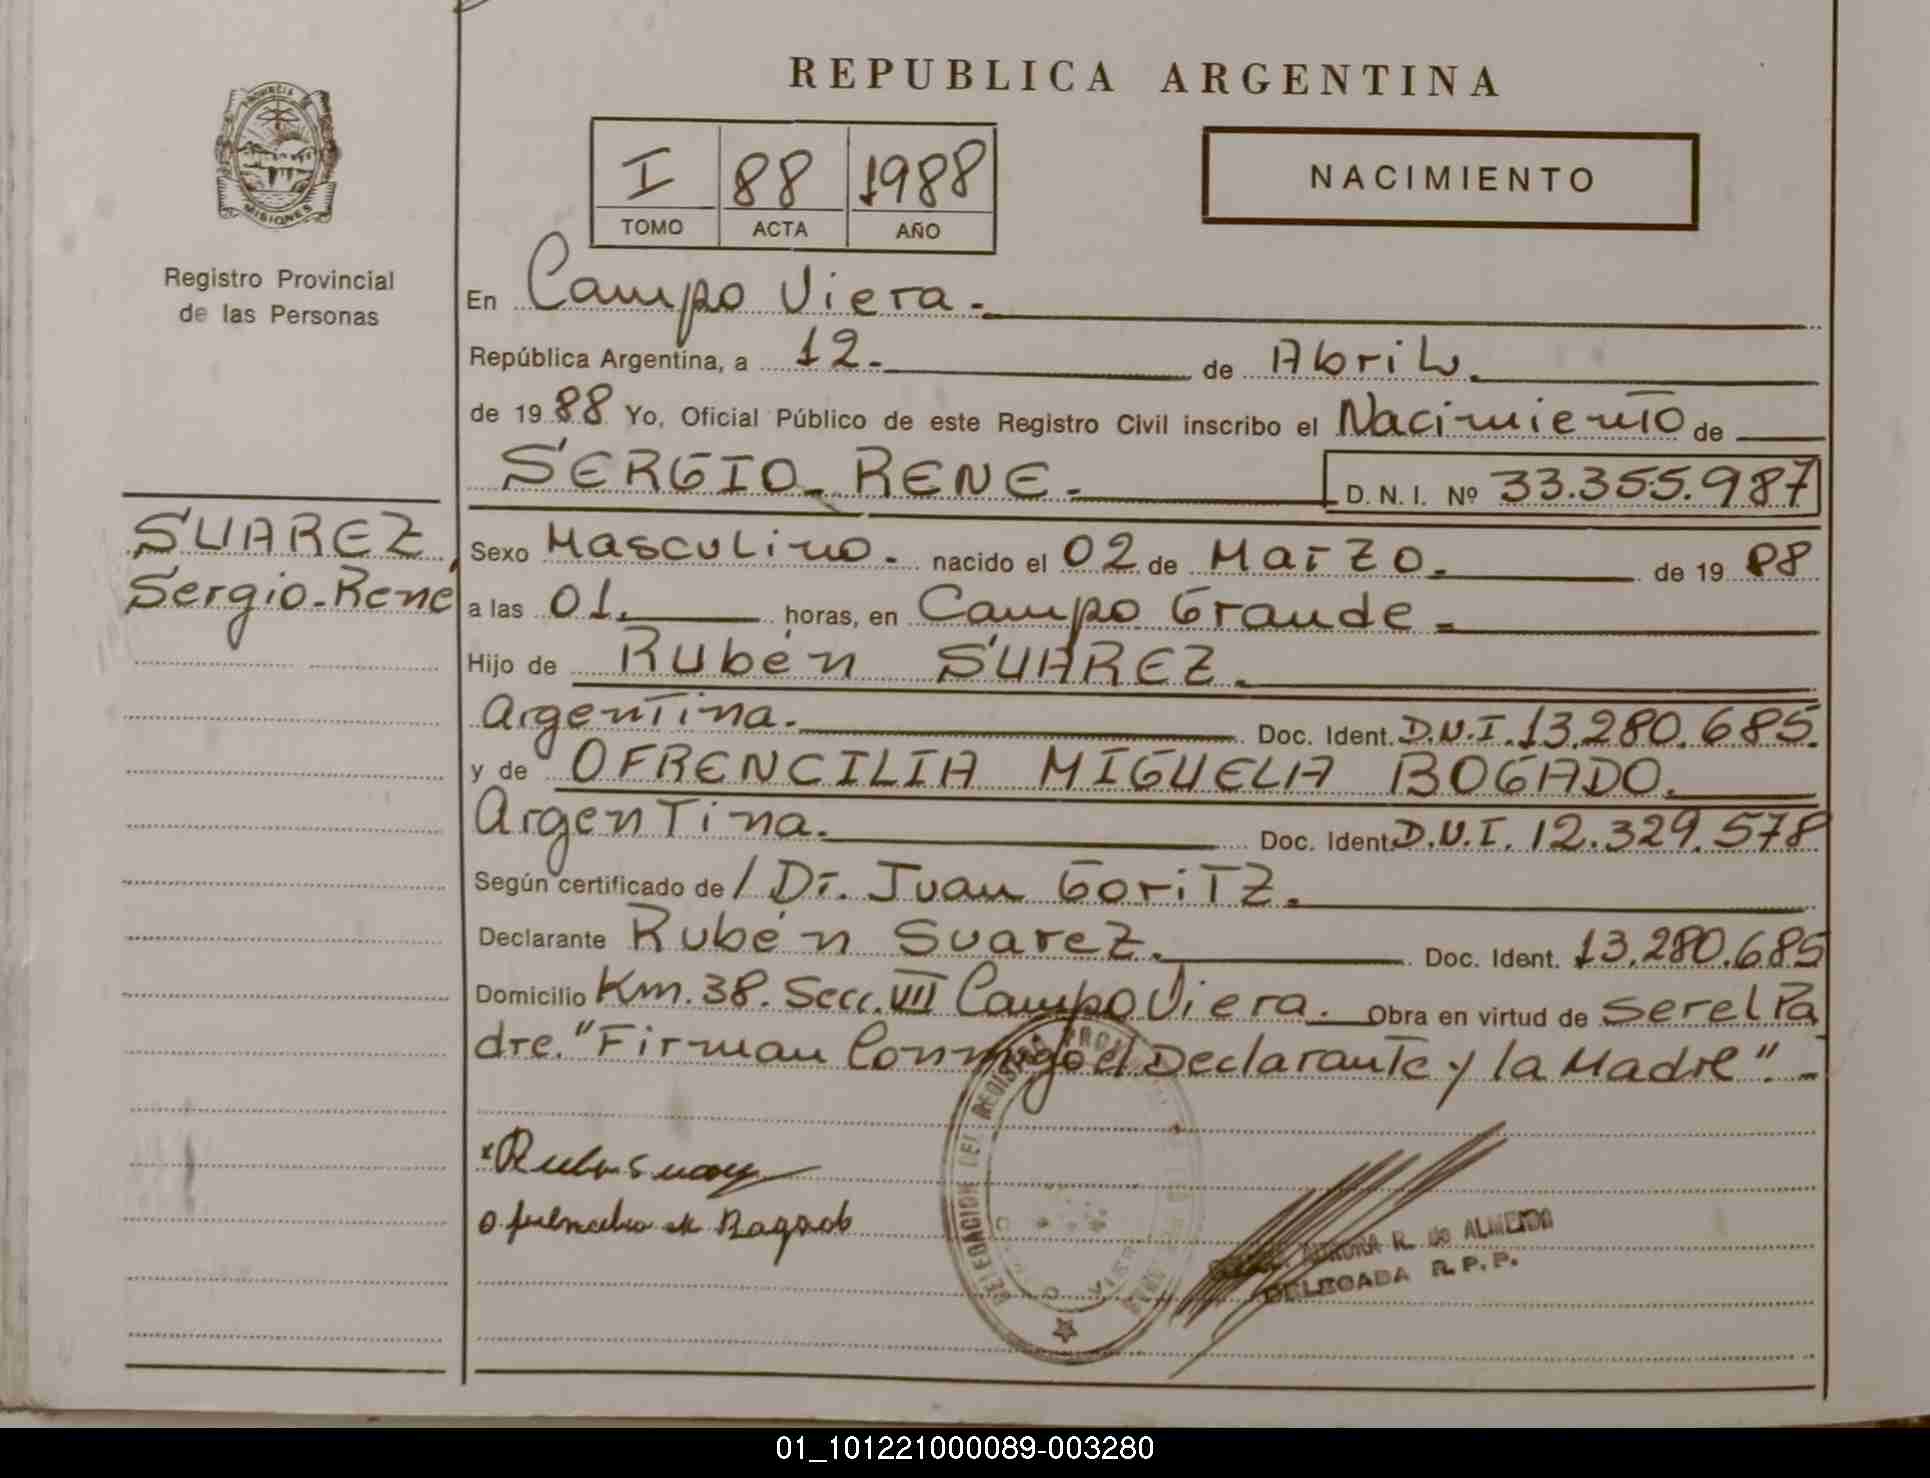 REPUBLICA ARGENTINA
PROVINCIA DE
MISIONES
I 88 1988
TOMO ACTA AÑO
NACIMIENTO
Registro Provincial
de las Personas
En Campo Viera.
República Argentina, a 12. de Abril.
de 1988 Yo, Oficial Público de este Registro Civil inscribo el Nacimiento de
SERGIO RENE. D. N. I. Nº 33.355.987
SUAREZ,
Sergio-René
Sexo Masculino. nacido el 02 de Marzo. de 19 88
a las 01. horas, en Campo Grande.
Hijo de Rubén SUAREZ.
Argentina. Doc. Ident. D.N.I. 13.280.685.
y de OFRENCILIA MIGUELA BOGADO.
Argentina. Doc. Ident. D.N.I. 12.329.578
Según certificado de / Dr. Juan Goritz.
Declarante Rubén Suarez. Doc. Ident. 13.280.685
Domicilio Km. 38. Secc. VIII Campo Viera. Obra en virtud de ser el Pa
dre. "Firman Conmigo el Declarante y la Madre".-
DELEGACION DEL REGISTRO
AURORA R. de ALMEIDA
DELEGADA R. P. P.
01_101221000089-003280